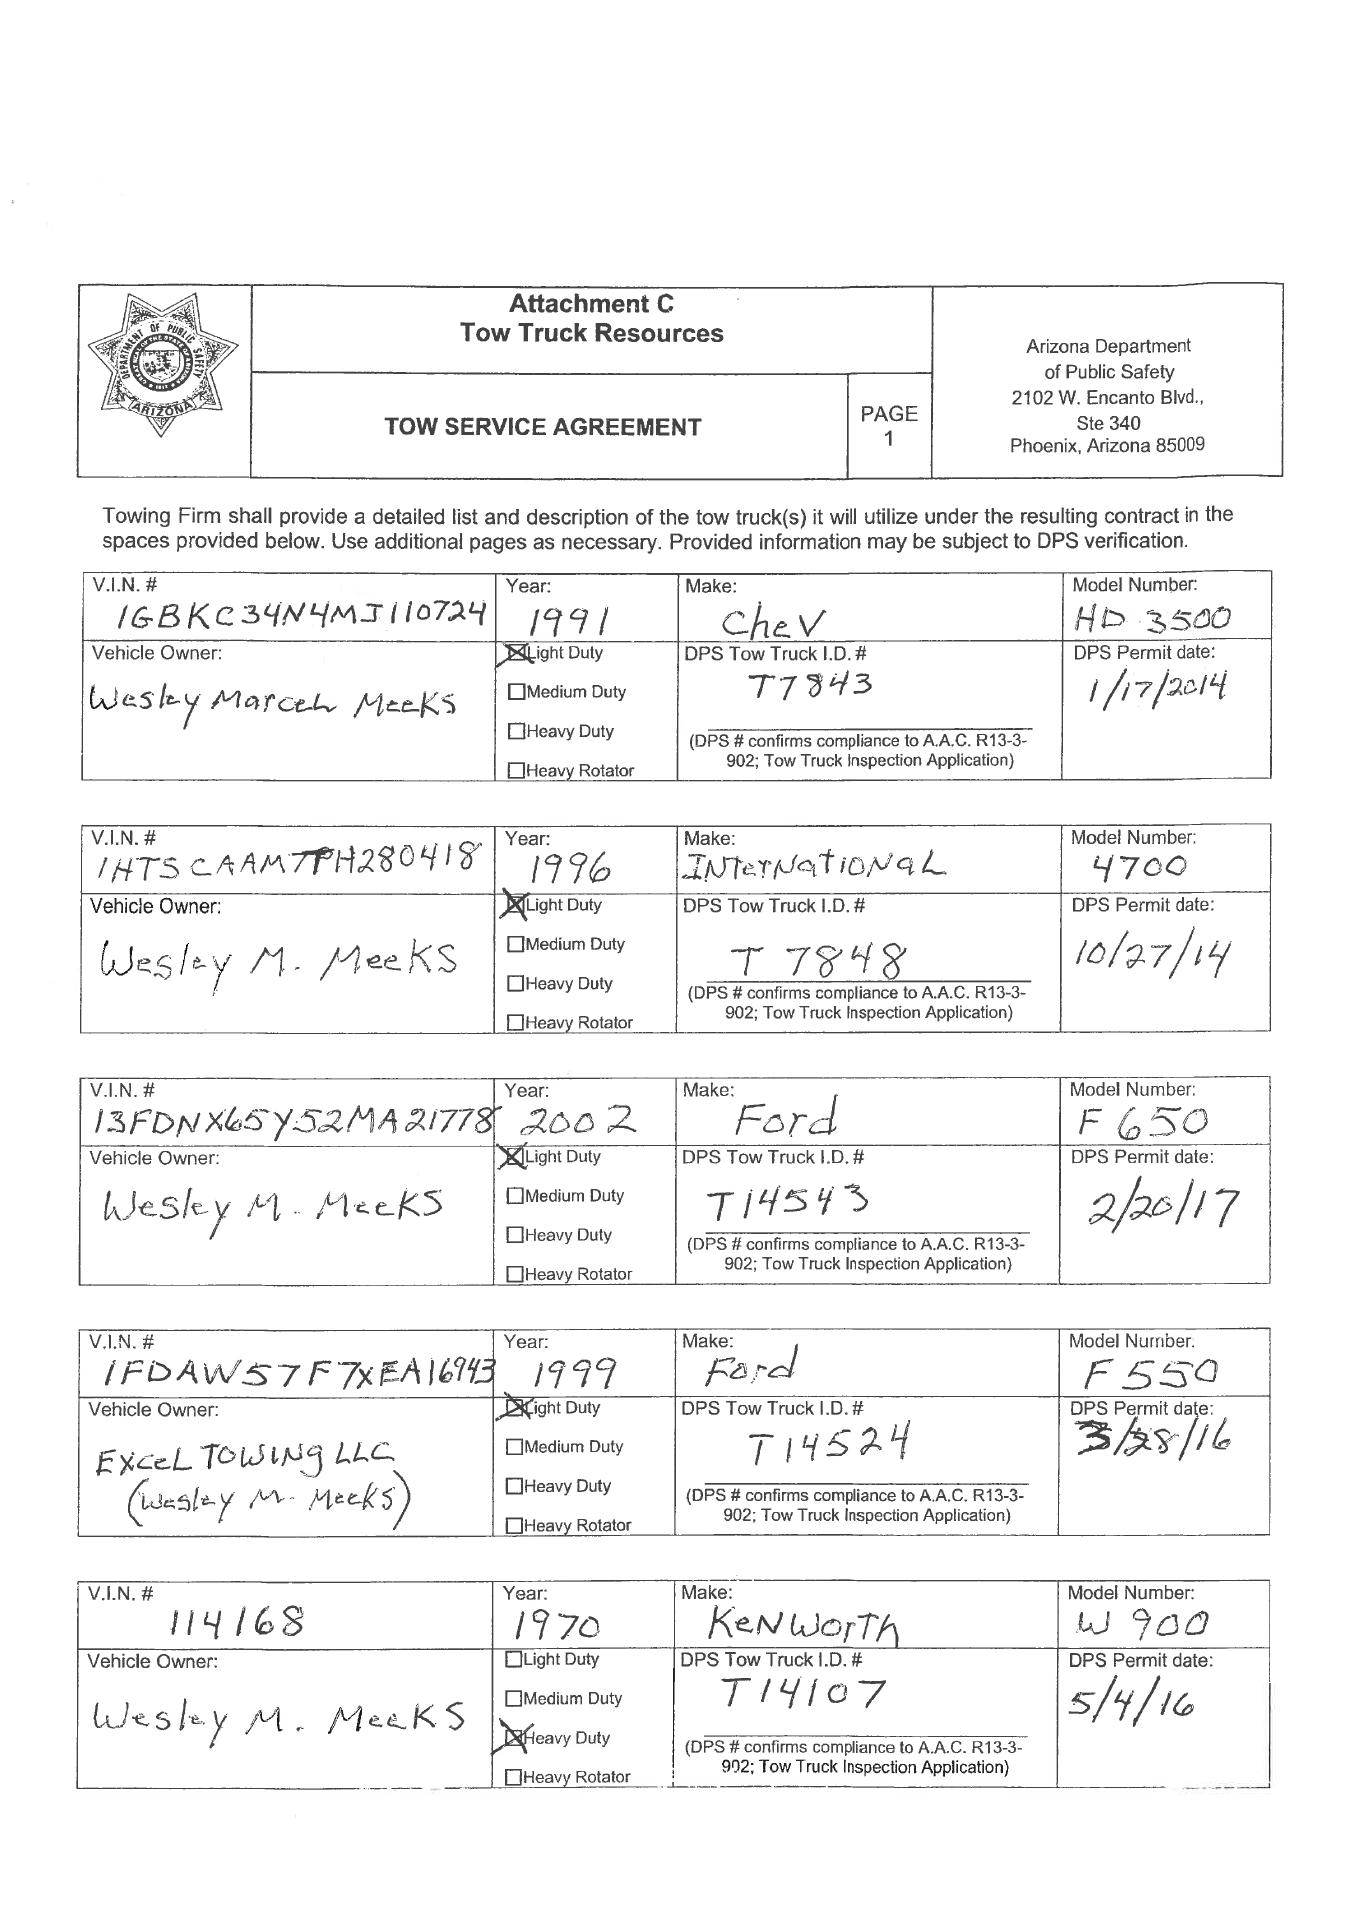 Attachment C
Tow Truck Resources
TOW SERVICE AGREEMENT
PAGE
1
Arizona Department
of Public Safety
2102 W. Encanto Blvd.,
Ste 340
Phoenix, Arizona 85009
DEPARTMENT OF PUBLIC SAFETY
ARIZONA
Towing Firm shall provide a detailed list and description of the tow truck(s) it will utilize under the resulting contract in the
spaces provided below. Use additional pages as necessary. Provided information may be subject to DPS verification.
V.I.N. # Year: Make: Model Number:
1GBKC34N4MJ110724 1991 Chev HD 3500
Vehicle Owner: Light Duty DPS Tow Truck I.D. # DPS Permit date:
Wesley Marcel Meeks Medium Duty T7843 1/17/2014
Heavy Duty (DPS # confirms compliance to A.A.C. R13-3-
Heavy Rotator 902; Tow Truck Inspection Application)
V.I.N. # Year: Make: Model Number:
1HTSCAAM7PH280418 1996 International 4700
Vehicle Owner: Light Duty DPS Tow Truck I.D. # DPS Permit date:
Wesley M. Meeks Medium Duty T 7848 10/27/14
Heavy Duty (DPS # confirms compliance to A.A.C. R13-3-
Heavy Rotator 902; Tow Truck Inspection Application)
V.I.N. # Year: Make: Model Number:
13FDNX65Y52MA21778 2002 Ford F 650
Vehicle Owner: Light Duty DPS Tow Truck I.D. # DPS Permit date:
Wesley M. Meeks Medium Duty T14543 2/20/17
Heavy Duty (DPS # confirms compliance to A.A.C. R13-3-
Heavy Rotator 902; Tow Truck Inspection Application)
V.I.N. # Year: Make: Model Number:
1FDAW57F7XEA16943 1999 Ford F 550
Vehicle Owner: Light Duty DPS Tow Truck I.D. # DPS Permit date:
Excel Towing LLC Medium Duty T14524 3/28/16
(Wesley M. Meeks) Heavy Duty (DPS # confirms compliance to A.A.C. R13-3-
Heavy Rotator 902; Tow Truck Inspection Application)
V.I.N. # Year: Make: Model Number:
114168 1970 Kenworth W 900
Vehicle Owner: Light Duty DPS Tow Truck I.D. # DPS Permit date:
Wesley M. Meeks Medium Duty T14107 5/4/16
Heavy Duty (DPS # confirms compliance to A.A.C. R13-3-
Heavy Rotator 902; Tow Truck Inspection Application)